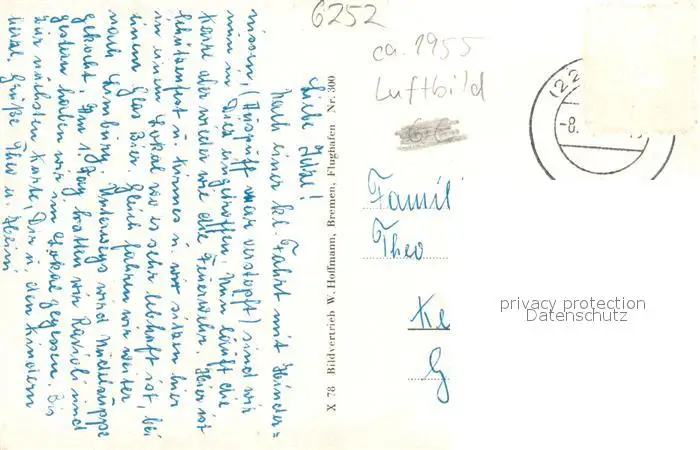 6252
ca. 1955
Luftbild
(22
-8.
Liebe
Nach einer kl. Fahrt mit Hinder=
nissen, (Auspuff war verstopft) sind wir
nun in Diez eingetroffen. Nun läuft die
Karre aber wieder wie die Feuerwehr. Hier ist
Schützenfest u. Kirmes u. wir sitzen hier
in einem Lokal wo es sehr lebhaft ist, bei
einem Glas Bier. Gleich fahren wir weiter
nach Limburg. Unterwegs wird Nudelsuppe
gekocht. Am 1. Tag hatten wir Ravioli und
gestern haben wir im Lokal gegessen. Bis
zur nächsten Karte, Dir u. den Kindern
herzl. Grüße Theo u.
X 78 Bildvertrieb W. Hoffmann, Bremen, Flughafen Nr. 300
Famil
Theo
Kl
G
privacy protection
Datenschutz